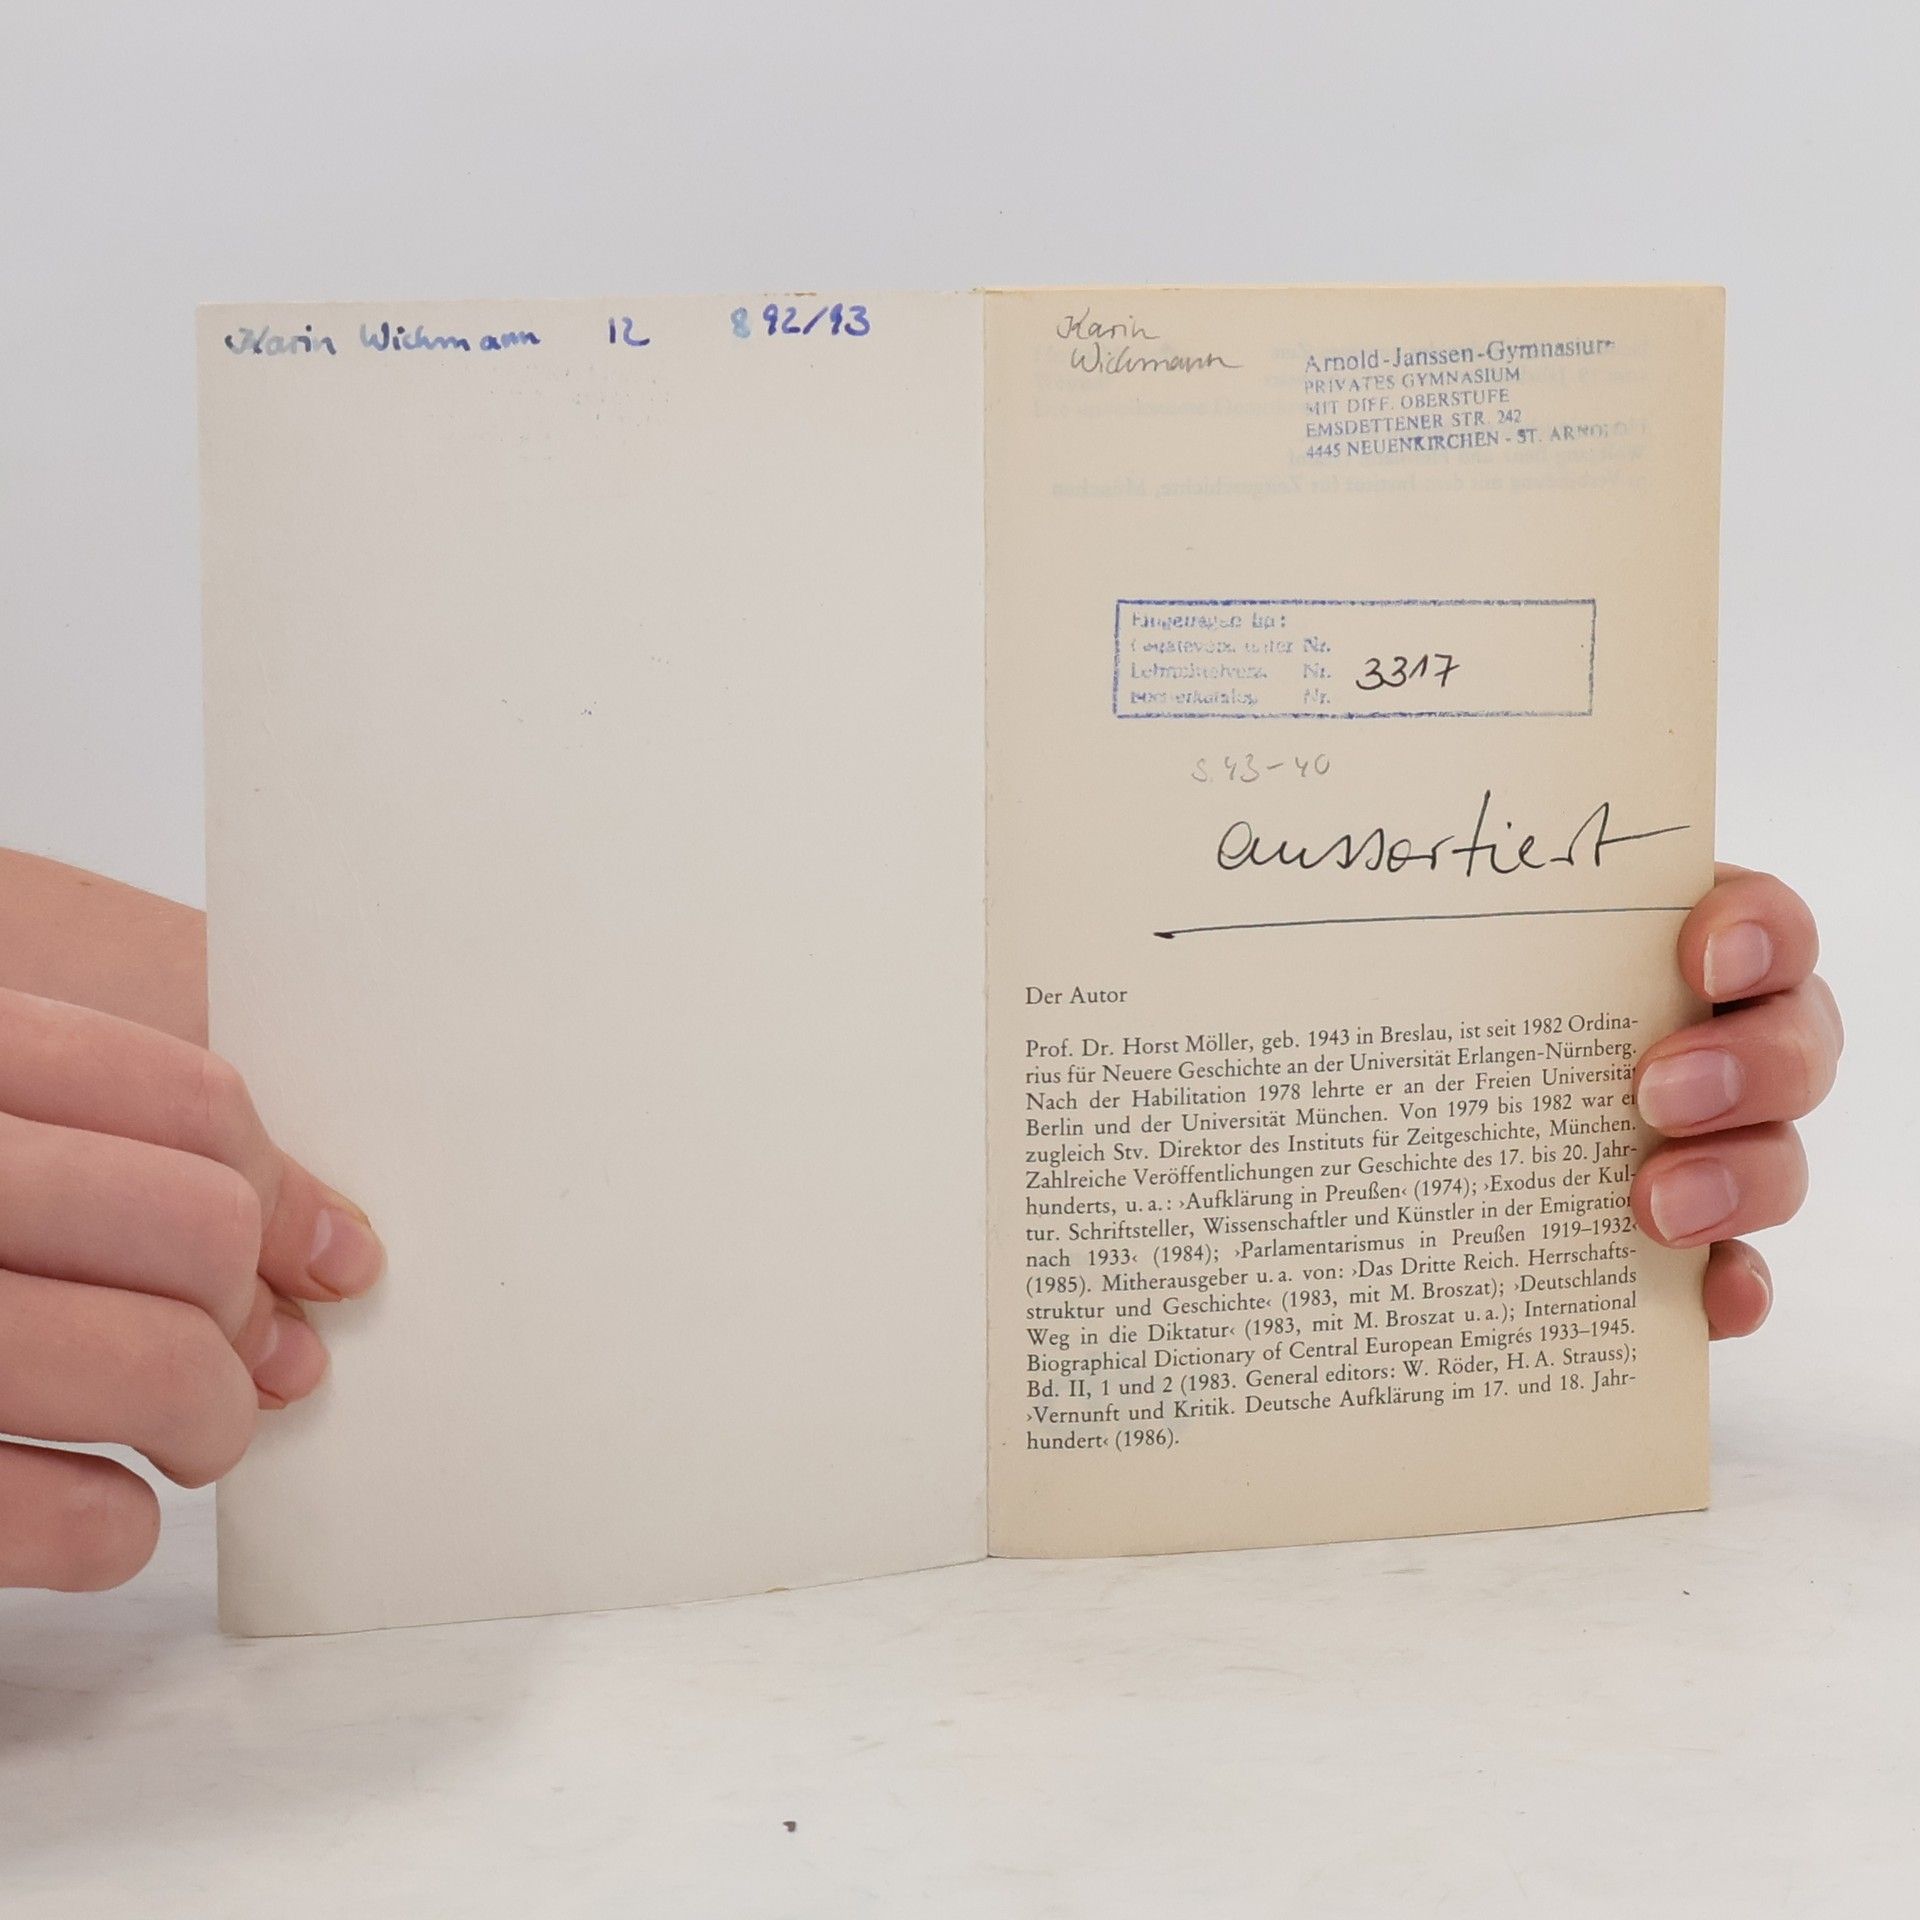 Karin Wichmann 12 8 92/93
Karin
Wichmann
Arnold-Janssen-Gymnasium
PRIVATES GYMNASIUM
MIT DIFF. OBERSTUFE
EMSDETTENER STR. 242
4445 NEUENKIRCHEN - ST. ARNOLD
Eingetragen im:
unter Nr.
Lehrmittelverz. Nr. 3317
Nr.
S. 43-40
aussortiert
Der Autor
Prof. Dr. Horst Möller, geb. 1943 in Breslau, ist seit 1982 Ordina-
rius für Neuere Geschichte an der Universität Erlangen-Nürnberg.
Nach der Habilitation 1978 lehrte er an der Freien Universität
Berlin und der Universität München. Von 1979 bis 1982 war er
zugleich Stv. Direktor des Instituts für Zeitgeschichte, München.
Zahlreiche Veröffentlichungen zur Geschichte des 17. bis 20. Jahr-
hunderts, u. a.: ›Aufklärung in Preußen‹ (1974); ›Exodus der Kul-
tur. Schriftsteller, Wissenschaftler und Künstler in der Emigration
nach 1933‹ (1984); ›Parlamentarismus in Preußen 1919–1932‹
(1985). Mitherausgeber u. a. von: ›Das Dritte Reich. Herrschafts-
struktur und Geschichte‹ (1983, mit M. Broszat); ›Deutschlands
Weg in die Diktatur‹ (1983, mit M. Broszat u. a.); International
Biographical Dictionary of Central European Emigrés 1933–1945.
Bd. II, 1 und 2 (1983. General editors: W. Röder, H. A. Strauss);
›Vernunft und Kritik. Deutsche Aufklärung im 17. und 18. Jahr-
hundert‹ (1986).